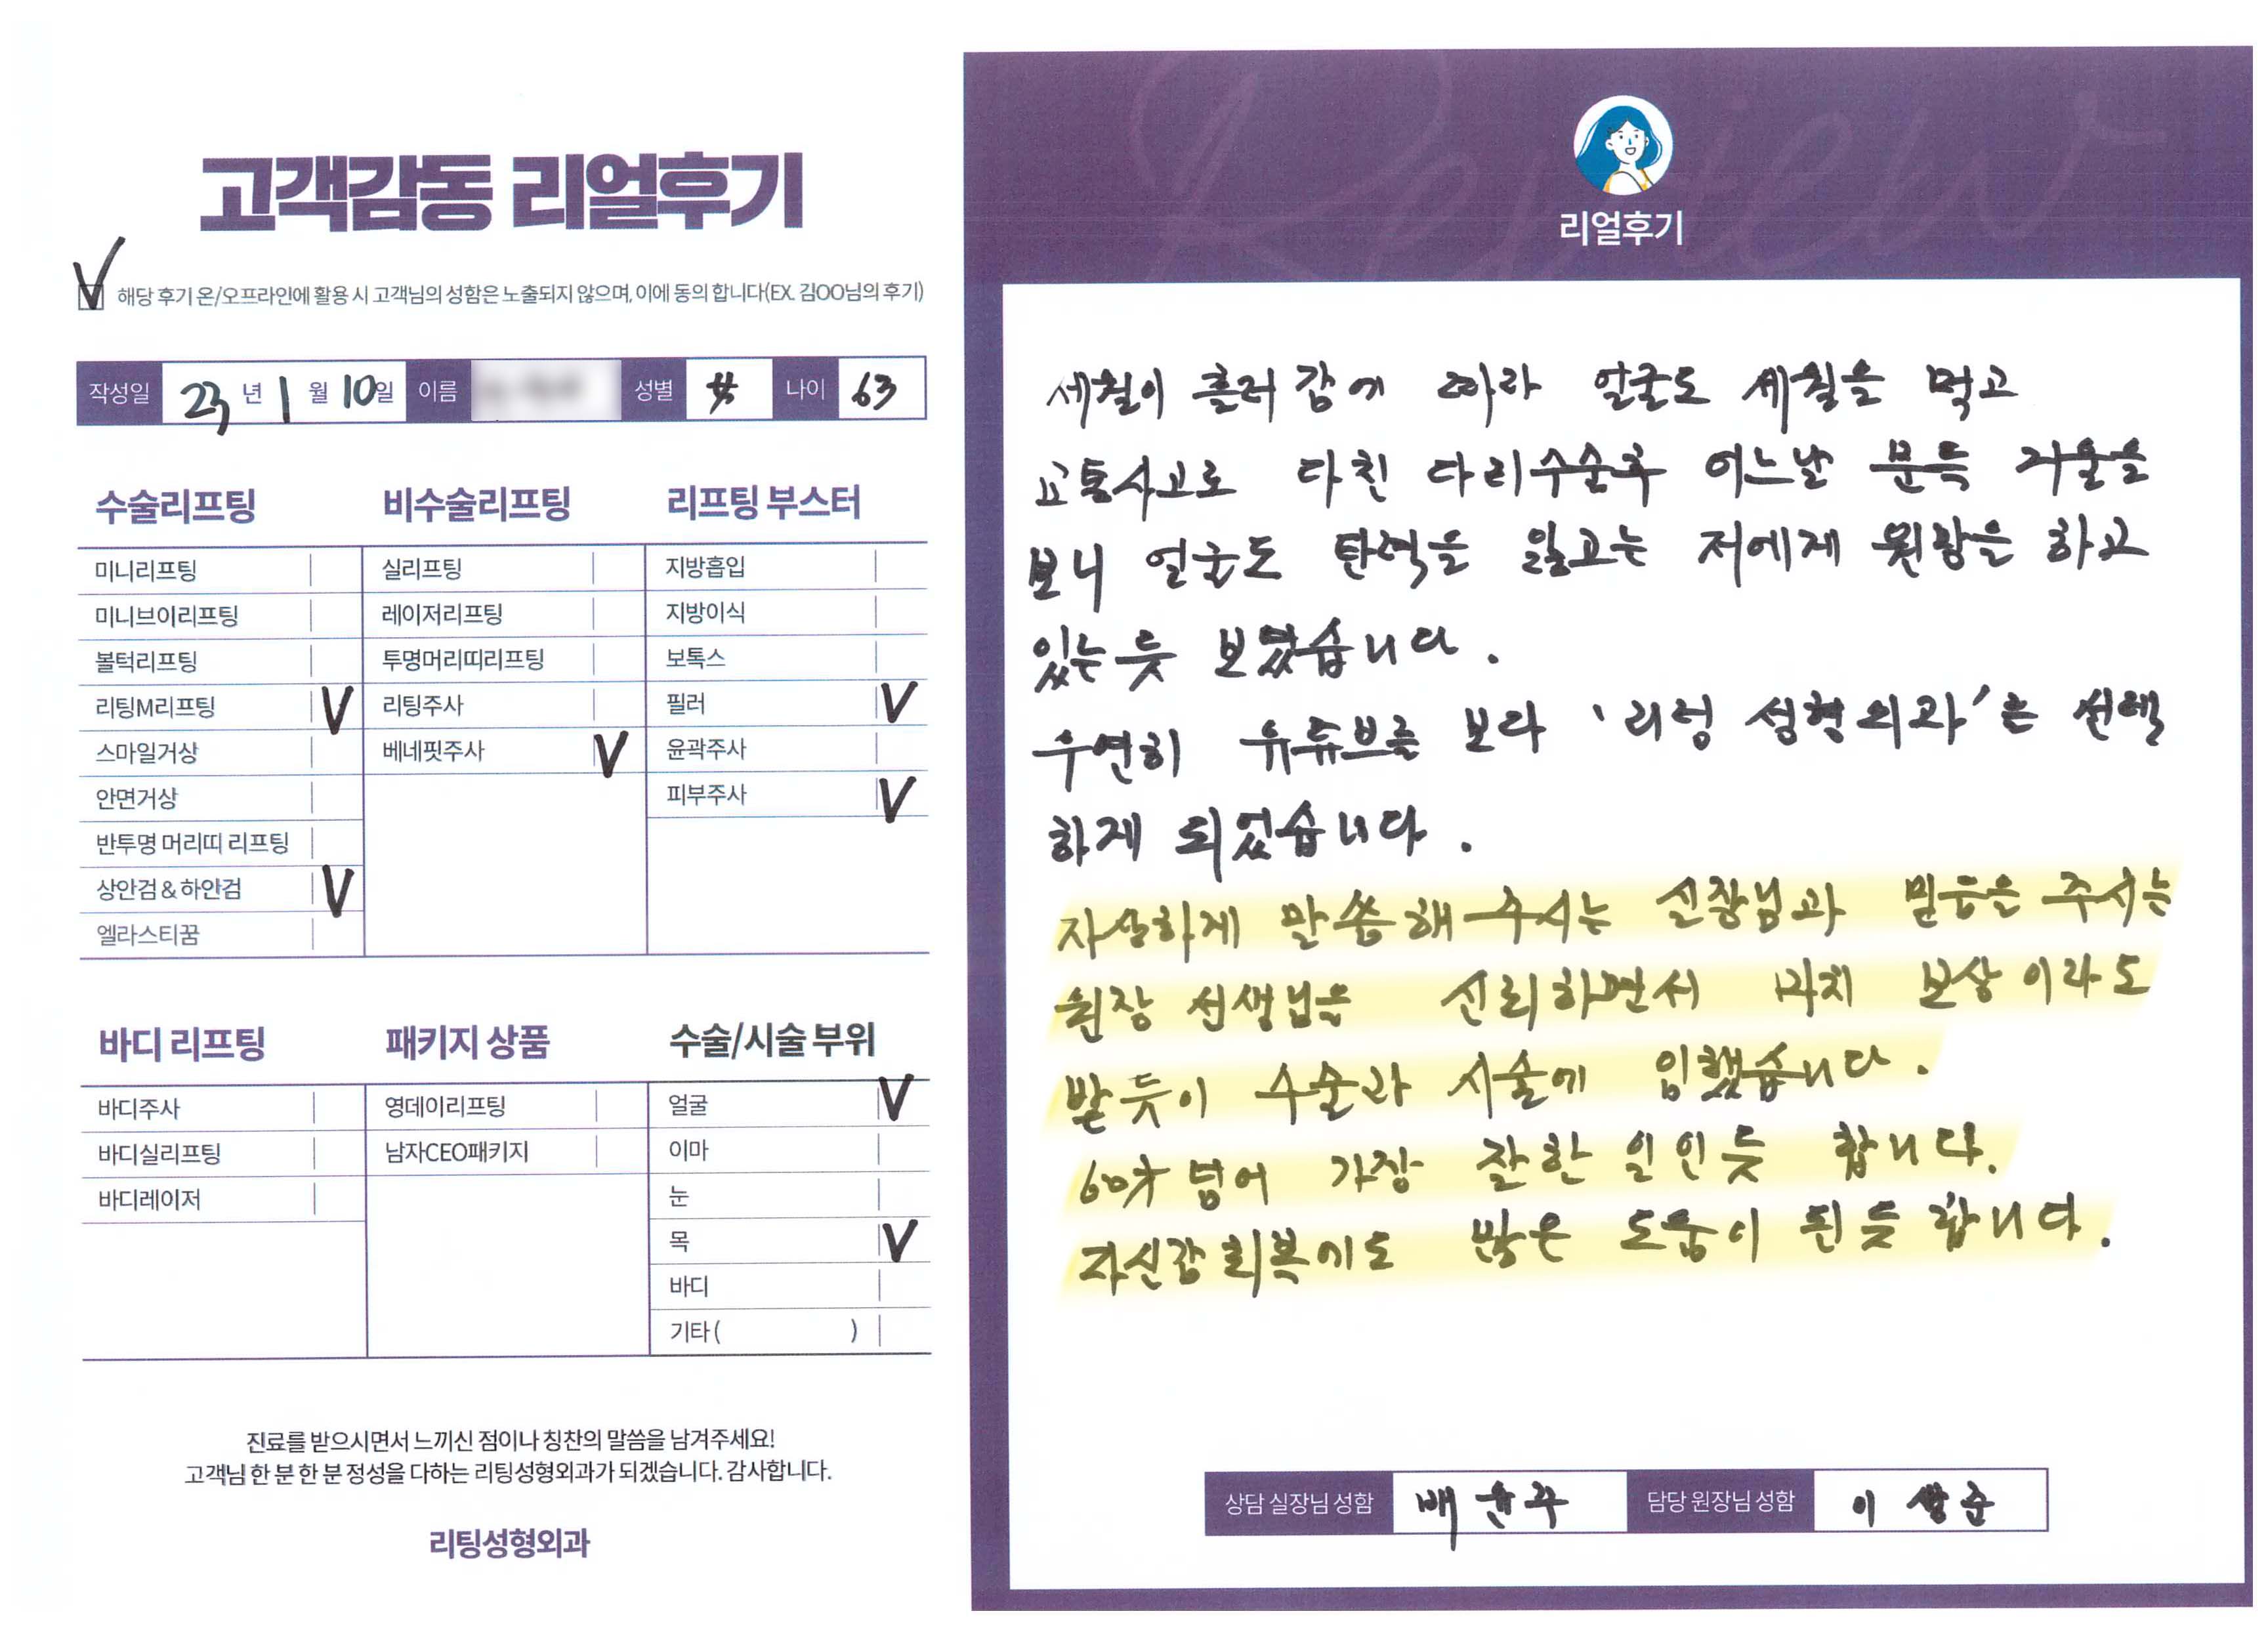 고객감동 리얼후기
V 해당 후기 온/오프라인에 활용 시 고객님의 성함은 노출되지 않으며, 이에 동의 합니다(EX. 김OO님의 후기)
작성일 23년 1월 10일 이름 성별 나이 63
수술리프팅
미니리프팅
미니브이리프팅
볼턱리프팅
리팅M리프팅 V
스마일거상
안면거상
반투명 머리띠 리프팅
상안검&하안검 V
엘라스티꿈
비수술리프팅
실리프팅
레이저리프팅
투명머리띠리프팅
리팅주사
베네핏주사 V
리프팅 부스터
지방흡입
지방이식
보톡스
필러 V
윤곽주사
피부주사 V
바디 리프팅
바디주사
바디실리프팅
바디레이저
패키지 상품
영데이리프팅
남자CEO패키지
수술/시술 부위
얼굴 V
이마
눈
목 V
바디
기타( )
진료를 받으시면서 느끼신 점이나 칭찬의 말씀을 남겨주세요!
고객님 한 분 한 분 정성을 다하는 리팅성형외과가 되겠습니다. 감사합니다.
리팅성형외과
Review
리얼후기
세월이 흘러감에 따라 얼굴도 세월을 먹고
교통사고로 다친 다리수술후 어느날 문득 거울을
보니 얼굴도 탄력을 잃고는 저에게 원망을 하고
있는듯 보였습니다.
우연히 유튜브를 보다 '리팅 성형외과'를 선택
하게 되었습니다.
자상하게 말씀해 주시는 실장님과 믿음을 주시는
원장 선생님을 신뢰하면서 마치 보상이라도
받듯이 수술과 시술에 임했습니다.
60才 넘어 가장 잘한 일인듯 합니다.
자신감 회복에도 많은 도움이 된듯 합니다.
상담 실장님 성함 배윤주 담당 원장님 성함 이상준